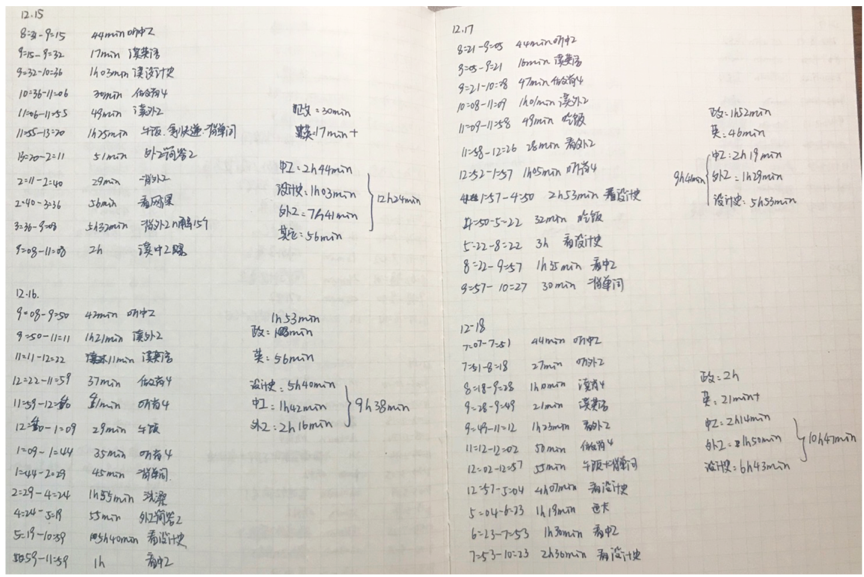 12.15
8:31-9:15 44min 听中2
9:15-9:32 17min 读英语
9:32-10:36 1h03min 读设计史
10:36-11:06 30min 低分肖4
11:06-11:55 49min 读外2
11:55-13:20 1h25min 午饭、拿快递、背单词
13:20-2:11 51min 外2简答2
2:11-2:40 29min 背外2
2:40-3:36 56min 看网课
3:36-9:08 5h32min 背外2
9:08-11:08 2h 读中2
政:30min
英:17min+
中2:2h44min
设计史:1h03min
外2:7h41min
其它:56min
12h24min
12.16.
9:08-9:50 42min 听中2
9:50-11:11 1h21min 读外2
11:11-12:22 11min 读英语
12:22-11:59 37min 低分肖4
11:59-12:40 41min 听肖4
12:40-1:09 29min 午饭
1:09-1:44 35min 听肖4
1:44-2:29 45min 背单词
2:29-4:24 1h55min 洗澡
4:24-5:19 55min 外2简答2
5:19-10:59 5h40min 看设计史
10:59-11:59 1h 看中2
政:1h53min
英:56min
设计史:5h40min
中2:1h42min
外2:2h16min
9h38min
12.17
8:21-9:05 44min 听中2
9:05-9:21 16min 读英语
9:21-10:08 47min 低分肖4
10:08-11:09 1h01min 读外2
11:09-11:58 49min 吃饭
11:58-12:26 28min 看外2
12:52-1:57 1h05min 听肖4
1:57-4:50 2h53min 看设计史
4:50-5:22 32min 吃饭
5:22-8:22 3h 看设计史
8:22-9:57 1h35min 看中2
9:57-10:27 30min 背单词
政:1h52min
英:46min
中2:2h19min
外2:1h29min
设计史:5h53min
9h41min
12.18
7:07-7:51 44min 听中2
7:51-8:18 27min 听外2
8:18-9:28 1h10min 读肖4
9:28-9:49 21min 读英语
9:49-11:12 1h23min 看外2
11:12-12:02 50min 低分肖4
12:02-12:57 55min 午饭+背单词
12:57-5:04 4h07min 看设计史
5:04-6:23 1h19min
6:23-7:53 1h30min 看中2
7:53-10:23 2h30min 看设计史
政:2h
英:21min+
中2:2h14min
外2:1h50min
设计史:6h43min
10h47min